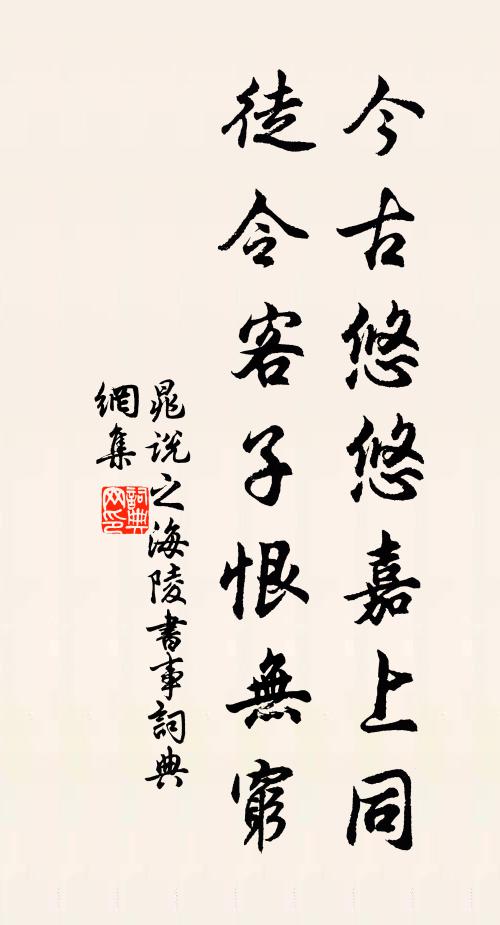 今古悠悠嘉上同
徒令客子恨無窮
晁說之海陵書事詞典
網集
詞典网印